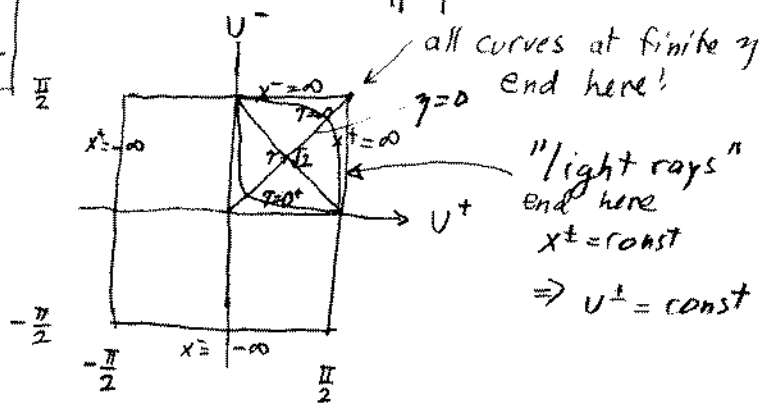 U⁻
all curves at finite η
end here!
π/2
x⁻=∞
η=0
x⁺=∞
x⁺=-∞
"light rays"
end here
τ=0⁺
U⁺
x^±=const
⇒ U^±=const
-π/2
x⁻=-∞
-π/2
π/2